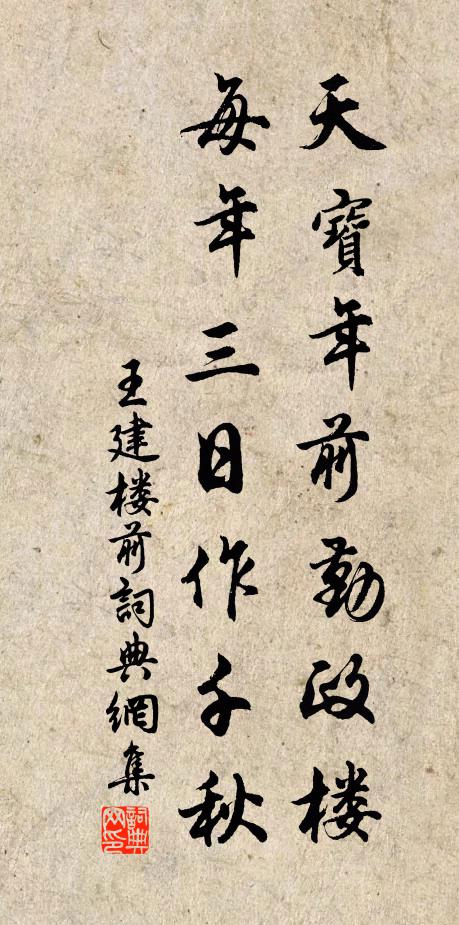 天寶年前勤政楼
每年三日作千秋
王建楼前詞典網集
詞典网印